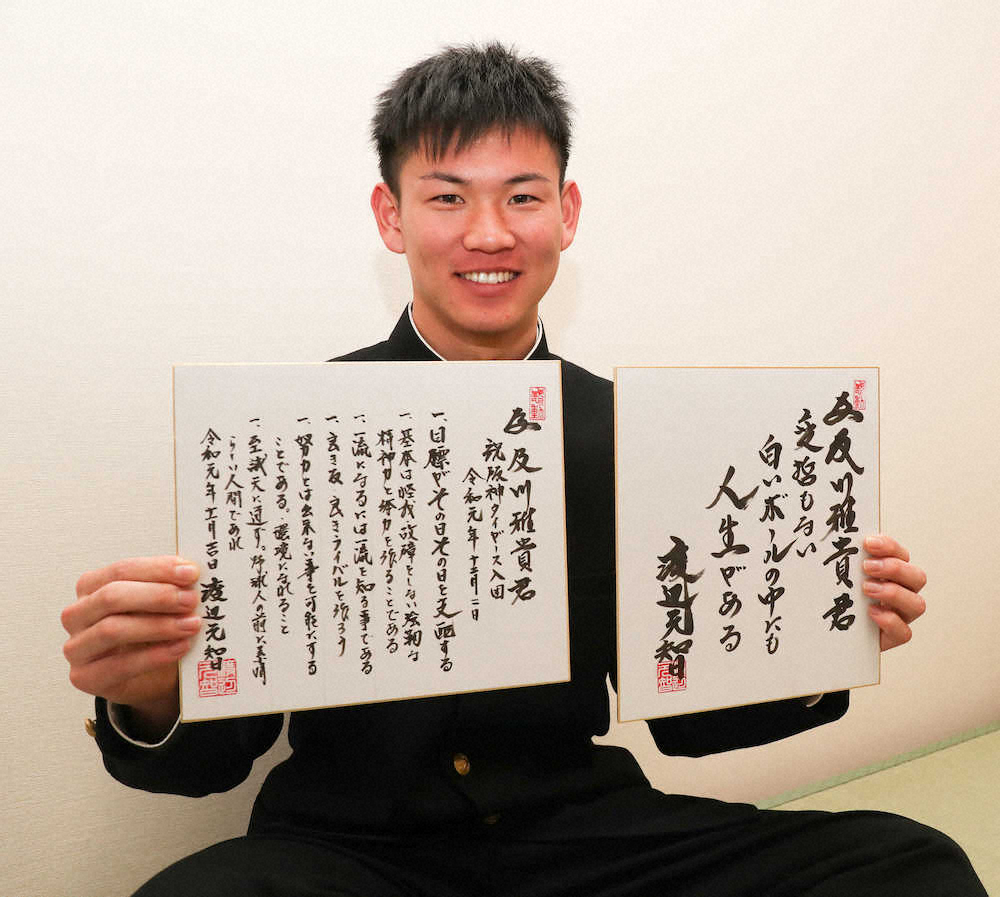 感動
為及川雅貴君
変哲もない
白いボールの中にも
人生がある
渡辺元智
感動
為及川雅貴君
祝阪神タイガース入団
令和元年十二月二日
一、目標がその日その日を支配する
一、基本は怪我、故障をしない強靭な
精神力と体力を張ることである
一、一流になるには一流を知る事である
一、良き友 良きライバルを張ろう
一、努力とは出来ない事を可能にする
ことである。環境になれること
一、至誠天に通ず。野球人の前に素晴
らしい人間であれ
令和元年十二月吉日 渡辺元智